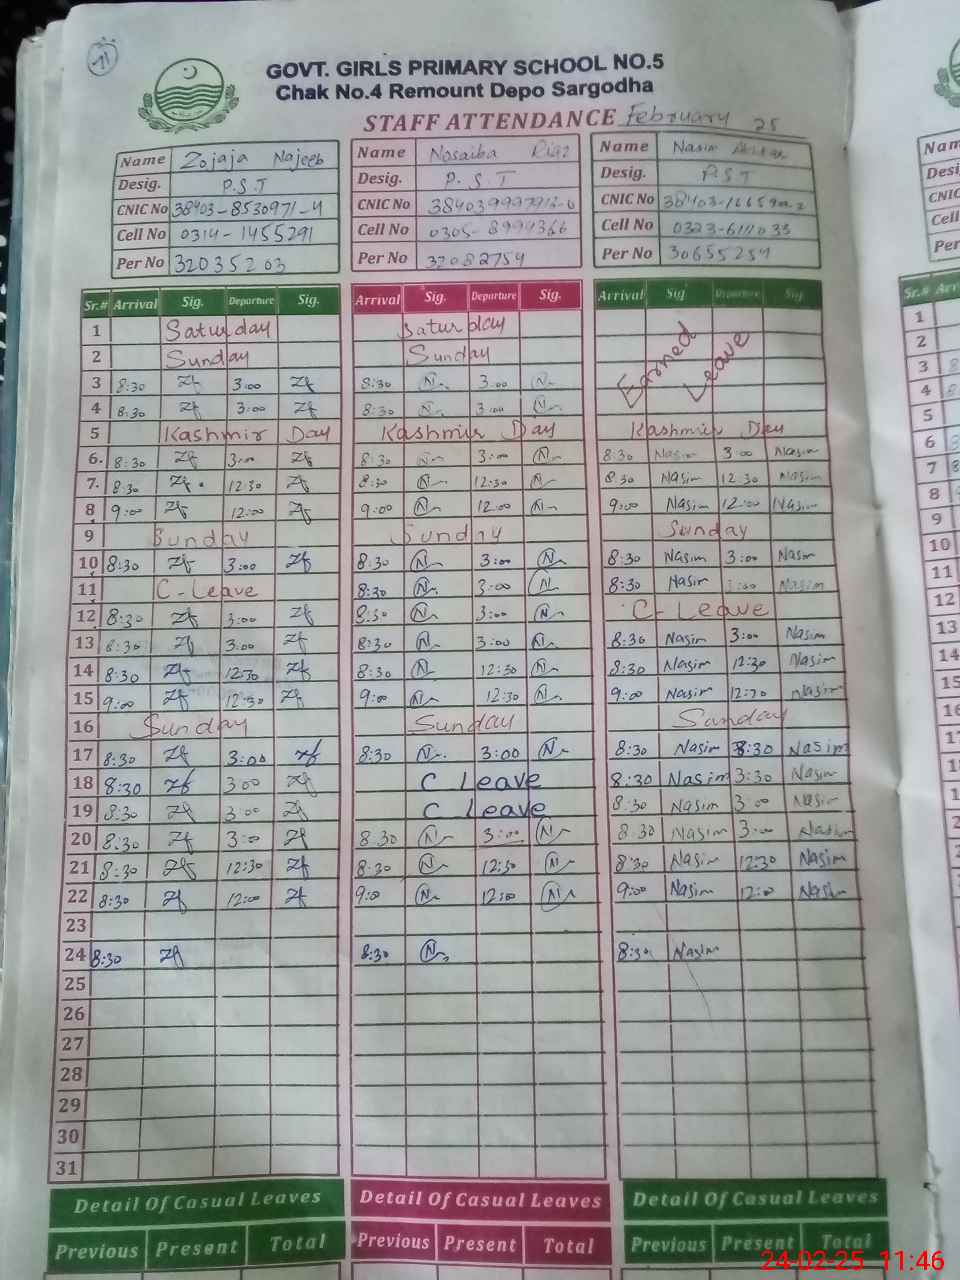 11
GOVT. GIRLS PRIMARY SCHOOL NO.5
Chak No.4 Remount Depo Sargodha
STAFF ATTENDANCE February 25
Name Zojaja Najeeb Name Nosaiba Riaz Name Nasim
Desig. P.S.T Desig. P.S.T Desig. PST
CNIC No 38403-8530971-4 CNIC No CNIC No
Cell No 0314-1455291 Cell No 0305-8994366 Cell No 0323-6111033
Per No 32035203 Per No 32082754 Per No 30655254
Sr.# Arrival Sig. Departure Sig. Arrival Sig. Departure Sig. Arrival Sig Departure Sig
1 Saturday Saturday
2 Sunday Sunday Earned Leave
3 8:30 Zf 3:00 Zf 8:30 N 3:00 N
4 8:30 Zf 3:00 Zf 8:30 N 3:00 N
5 Kashmir Day Kashmir Day Kashmir Day
6. 8:30 Zf 3:00 Zf 8:30 N 3:00 N 8:30 Nasim 3:00 Nasim
7. 8:30 Zf 12:30 Zf 8:30 N 12:30 N 8:30 Nasim 12:30 Nasim
8 9:00 Zf 12:00 Zf 9:00 N 12:00 N 9:00 Nasim 12:00 Nasim
9 Sunday Sunday Sunday
10 8:30 Zf 3:00 Zf 8:30 N 3:00 N 8:30 Nasim 3:00 Nasim
11 C-Leave 8:30 N 3:00 N 8:30 Nasim 3:00 Nasim
12 8:30 Zf 3:00 Zf 8:30 N 3:00 N C-Leave
13 8:30 Zf 3:00 Zf 8:30 N 3:00 N 8:30 Nasim 3:00 Nasim
14 8:30 Zf 12:30 Zf 8:30 N 12:30 N 8:30 Nasim 12:30 Nasim
15 9:00 Zf 12:30 Zf 9:00 N 12:30 N 9:00 Nasim Nasim
16 Sunday Sunday Sunday
17 8:30 Zf 3:00 Zf 8:30 N 3:00 N 8:30 Nasim 3:30 Nasim
18 8:30 Zf 3:00 Zf C Leave 8:30 Nasim 3:30 Nasim
19 8:30 Zf 3:00 Zf C Leave 8:30 Nasim 3:00 Nasim
20 8:30 Zf 3:00 Zf 8:30 N 3:00 N 8:30 Nasim 3:00 Nasim
21 8:30 Zf 12:30 Zf 8:30 N 12:30 N 8:30 Nasim 12:30 Nasim
22 8:30 Zf 12:00 Zf 9:0 N 12:00 N 9:00 Nasim 12:0 Nasim
23
24 8:30 Zf 8:30 N 8:30 Nasim
25
26
27
28
29
30
31
Detail Of Casual Leaves Detail Of Casual Leaves Detail Of Casual Leaves
Previous Present Total Previous Present Total Previous Present Total
24-02-25 11:46